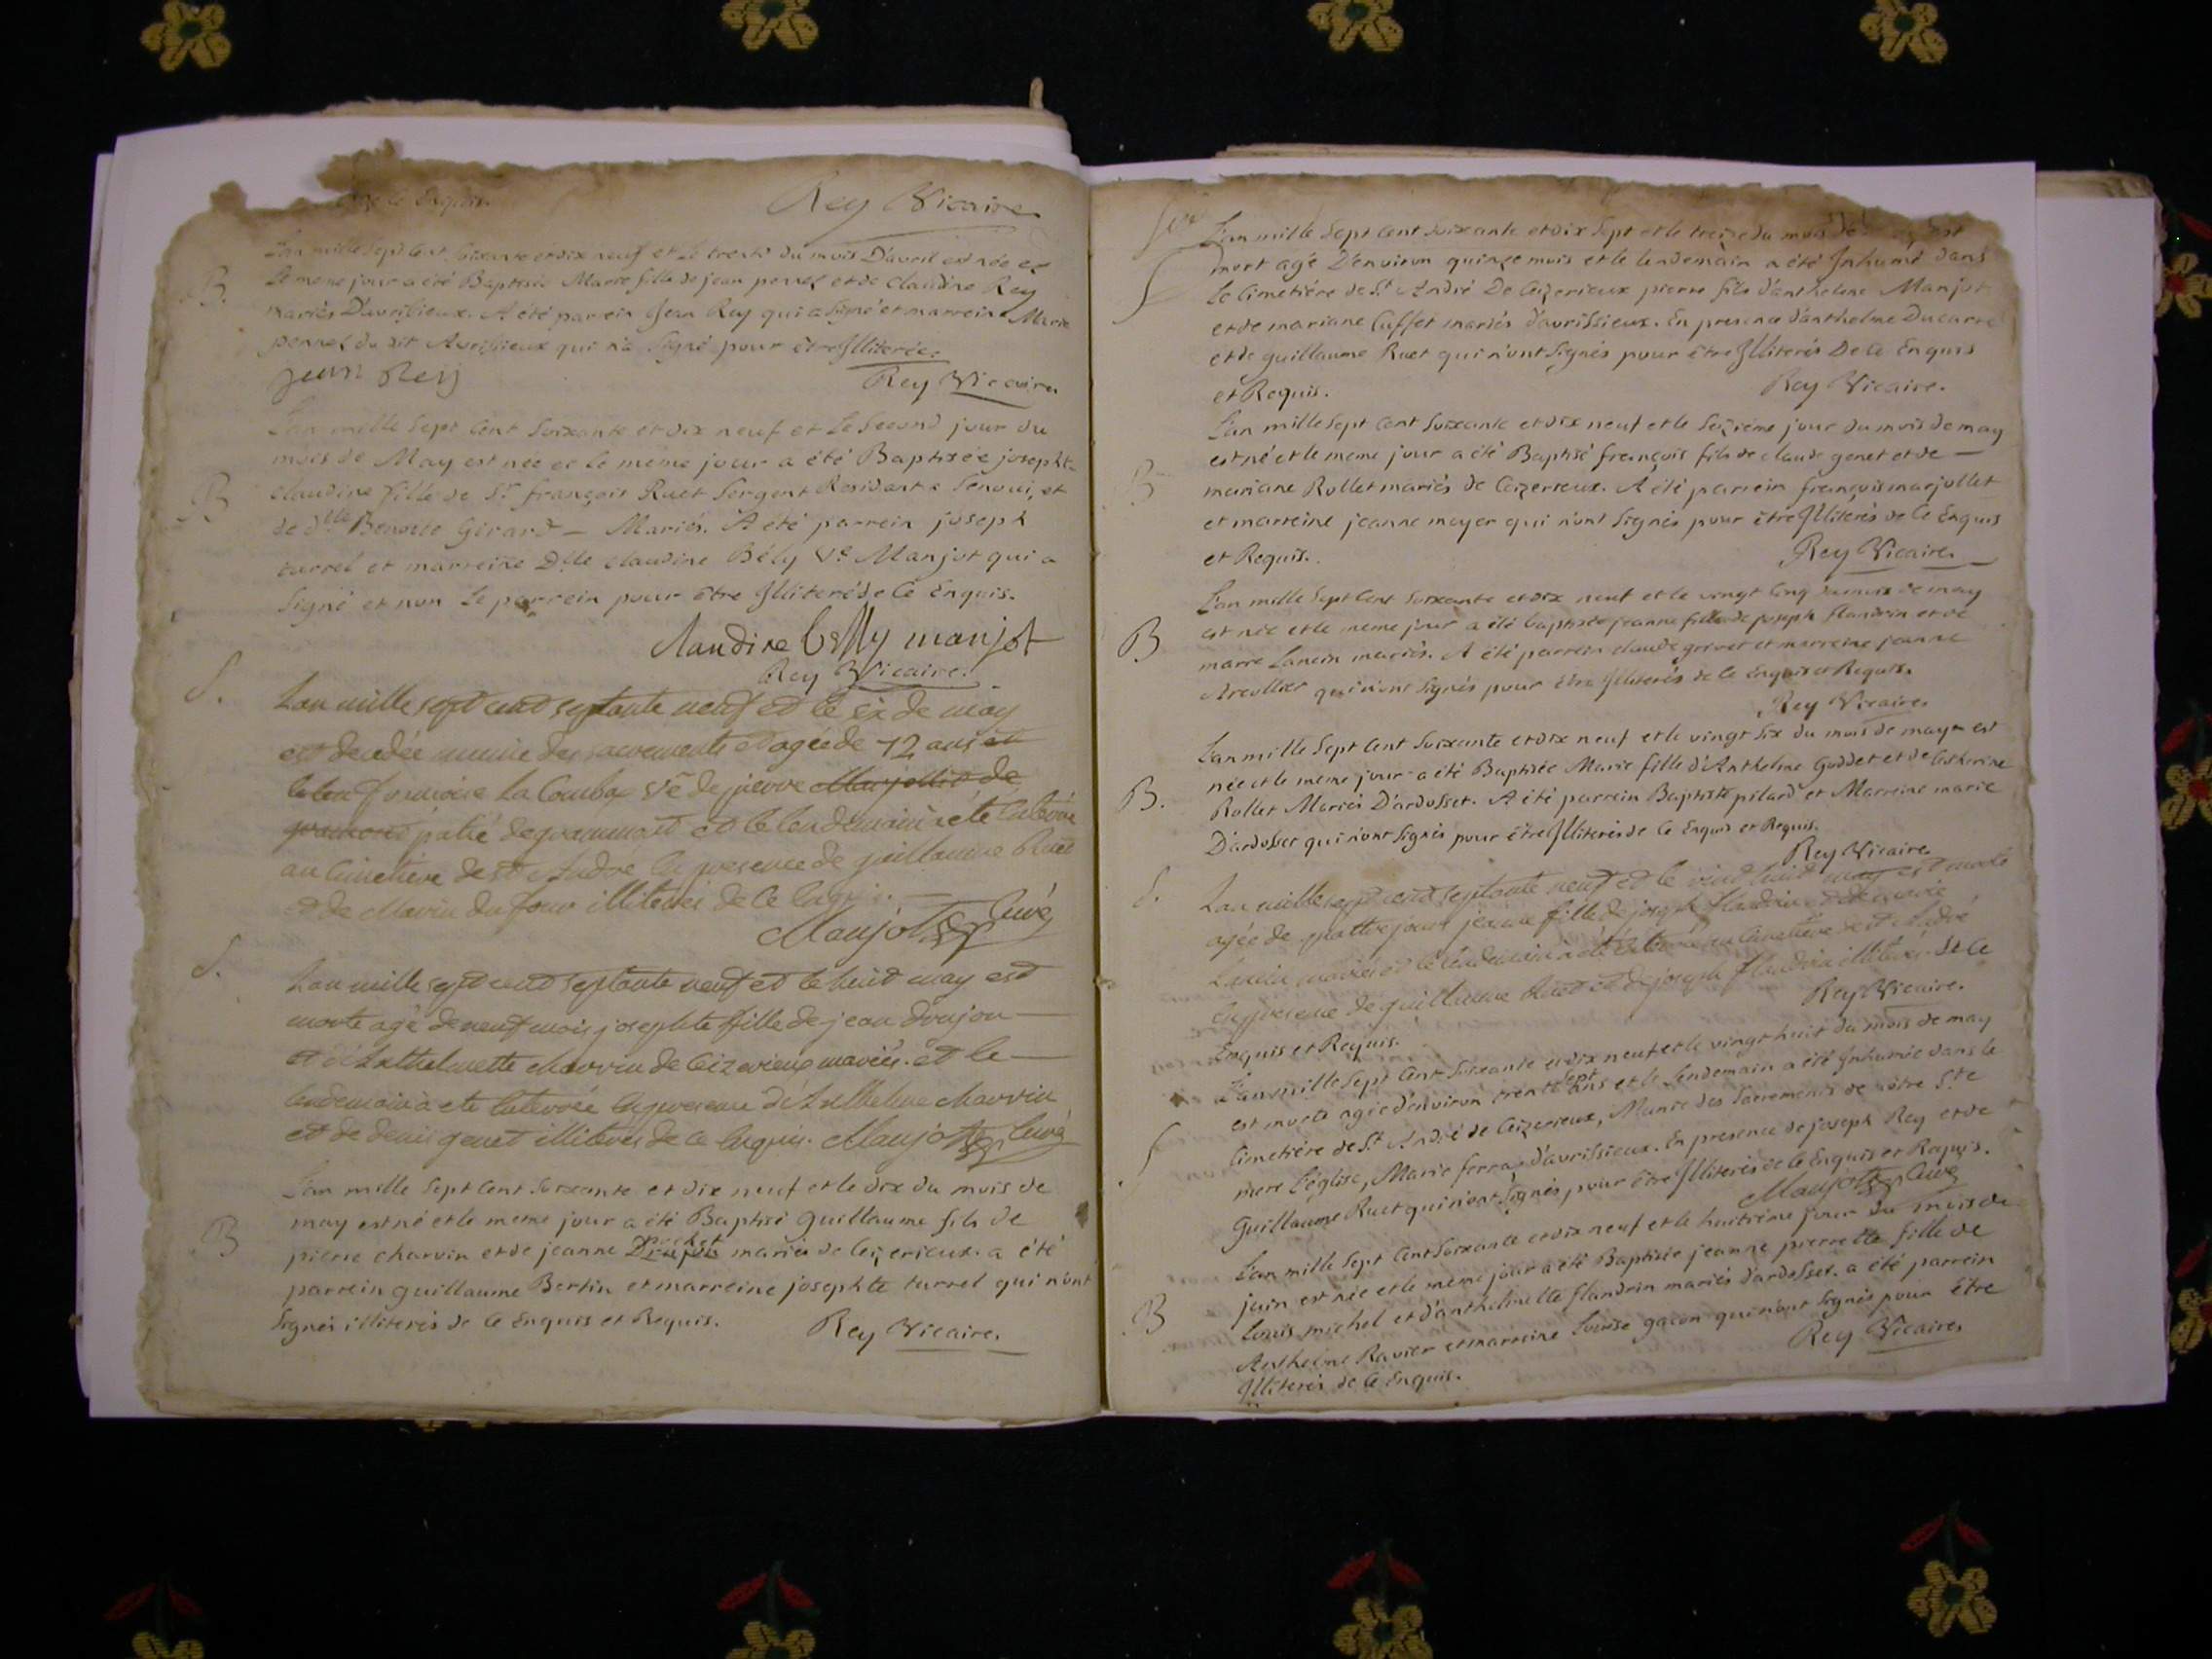 de Ce Enquis.
Rey Vicaire
L'an mille Sept Cent Soixante et dix neuf et Le trente du mois D'avril est née et
B.
Le meme jour a été Baptisée Marie fille de jean pernel et de Claudine Rey
mariés D'avrissieux. A été parrein Jean Rey qui a signé et marreine Marie
pernel du dit Avrissieux qui n'a signé pour être Illiterée.
jean Rey
Rey Vicaire
L'an mille Sept Cent Soixante et dix neuf et Le Second jour du
mois de May est née et le même jour a été Baptisée josephte
B
claudine fille de Sr. françois Ruet Sergent Résidant a et
de dlle Benoite Girard — Mariés. A été parrein joseph
turrel et marreine Dlle claudine Bély Ve Manjot qui a
Signé et non Le parrein pour être Illiteré de Ce Enquis.
Claudine belly manjot
Rey Vicaire.
S.
Lan mille sept cent septante neuf et le six de may
est decedée munie des sacrements et agée de 72 ans et
françoise La Combe vé de pierre Marjollet de
patié de grammont et le lendemain a été enterrée
au Cimetiere de st Andre En presence de guillaume Ruet
et de Marin du four illiterés de Ce Enquis.
Manjot Curé
S.
Lan mille sept cent septante neuf et le huit may est
morte agé de neuf mois josephte fille de jean donjon —
et d'Anthelmette charvin de Ceizerieux mariés. et le —
lendemain a eté Enterrée En presence d'Anthelme charvin
et de denis genet illiterés de ce Enquis. Manjot Curé
L'an mille Sept Cent Soixante et dix neuf et le dix du mois de
may est né et le meme jour a été Baptisé guillaume fils de
B
pierre charvin et de jeanne pochet mariés de Ceizerieux. a été
parrein guillaume Bertin et marreine josephte turrel qui n'ont
Signés illiterés de Ce Enquis et Requis.
Rey Vicaire.
L'an mille Sept Cent Soixante et dix Sept et le treize du mois de est
S
mort agé D'environ quinze mois et le lendemain a été Inhumé dans
Le Cimetiére de St. André De Ceizerieux pierre fils d'anthelme Manjot
et de mariane Cusset mariés d'avrissieux. En presence d'anthelme Ducarre
et de guillaume Ruet qui n'ont Signés pour être Illiterés De Ce Enquis
et Requis.
Rey Vicaire.
L'an mille Sept Cent Soixante et dix neuf et le Seiziéme jour du mois de may
est né et le meme jour a été Baptisé françois fils de claude genet et de —
B
mariane Rollet mariés de Ceizerieux. A été parrein françois marjollet
et marreine jeanne moyer qui n'ont Signés pour être Illiterés de Ce Enquis
et Requis.
Rey Vicaire
L'an mille Sept Cent Soixante et dix neuf et le vingt Cinq du mois de may
est née et le meme jour a été baptisée jeanne fille de joseph flandrin et de
B
marie Lancin mariés. A été parrein claude grivet et marreine jeanne
qui n'ont Signés pour être Illiterés de Ce Enquis et Requis.
Rey Vicaire
L'an mille Sept Cent Soixante et dix neuf et le vingt Six du mois de may est
née et le meme jour a été Baptisée Marie fille d'Anthelme Goddet et de Catherine
B.
Rollet Mariés D'ardosset. A été parrein Baptiste pilard et Marreine marie
D'ardosset qui n'ont Signés pour être Illiterés de Ce Enquis et Requis.
Rey Vicaire
S.
Lan mille sept cent septante neuf et le vint huit may est morte
agée de quatre jours jeanne fille de joseph flandrin et de marie
Lancin mariés et le lendemain a été Enterrée au Cimetiere de st André
En presence de guillaume Ruet et de joseph flandrin illiterés De Ce
Enquis et Requis.
Rey Vicaire.
L'an mille Sept Cent Soixante et dix neuf et le vingt huit du mois de may
est morte agée d'environ trente sept ans et le lendemain a été Inhumée dans le
S
Cimetiére de St. André de Ceizerieux, Munie des Sacrements de nôtre Ste
mere L'église, Marie ferra, d'avrissieux. En presence de joseph Rey et de
Guillaume Ruet qui n'ont Signés pour être Illiterés de Ce Enquis et Requis.
Manjot Curé
L'an mille Sept Cent Soixante et dix neuf et le huitiéme jour du mois de
juin est née et le même jour a été Baptisée jeanne pierrette fille de
B
Louis michel et d'anthelmette flandrin mariés d'ardosset. a été parrein
Anthelme Ravier et marreine Louise gacon qui n'ont Signés pour être
Illiterés de Ce Enquis.
Rey Vicaire